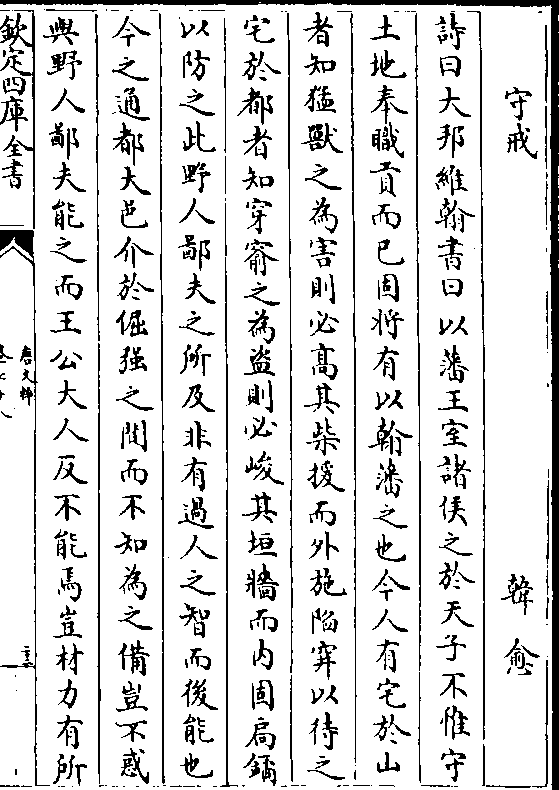 守戒　韓愈
詩曰大邦維翰書曰以藩王室諸侯之於天子不惟守
土地奉職貢而已固將有以翰藩之也今人有宅於山
者知猛獸之為害則必髙其柴援而外施陷穽以待之
宅於都者知穿窬之為盗則必峻其垣牆而内固扄鐍
以防之此野人鄙夫之所及非有過人之智而後能也
今之通都大邑介於倔强之間而不知為之備豈不惑
與野人鄙夫能之而王公大人反不能焉豈材力有所
欽定四庫全書
唐文粹